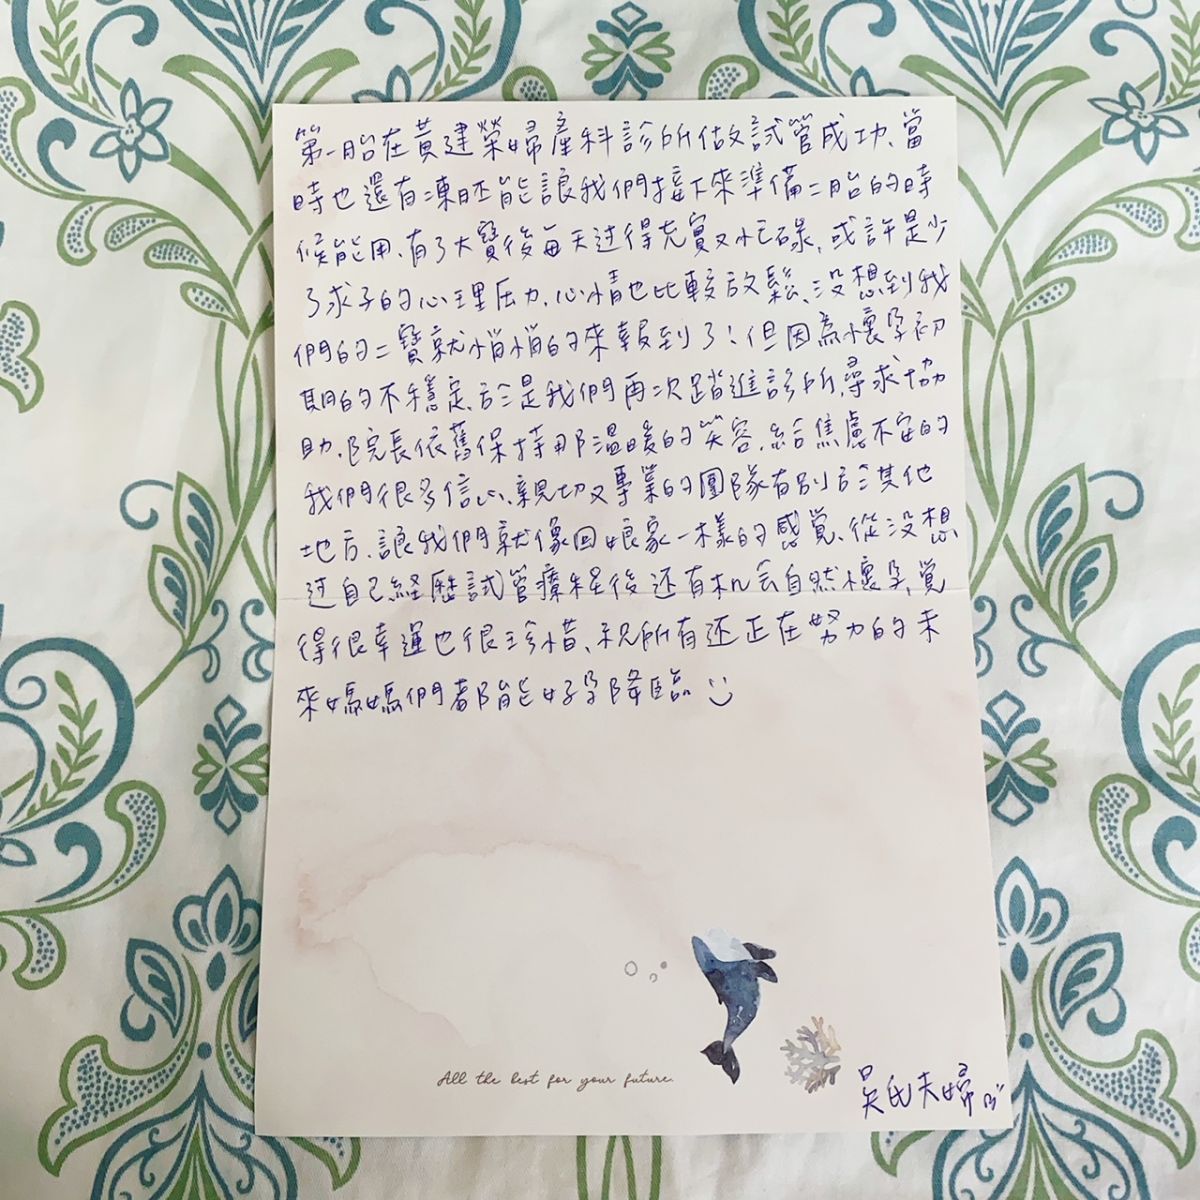 第一胎在黃建榮婦產科診所做試管成功、當
時也還有凍胚能讓我們接下來準備二胎的時
候能用、有了大寶後每天过得充實又忙碌、或許是少
了求子的心理压力、心情也比較放鬆、沒想到我
們的二寶就悄悄的來報到了！但因為懷孕初
期的不穩定、於是我們再次踏進診所尋求協
助、院長依舊保持那溫暖的笑容、給焦慮不安的
我們很多信心、親切又專業的團隊有別於其他
地方、讓我們就像回娘家一樣的感覚、從沒想
过自己經歷試管療程後还有机会自然懷孕、覚
得很幸運也很珍惜、祝所有还正在努力的未
來媽媽們都能好孕降臨 :)
All the best for your future.
吳氏夫婦